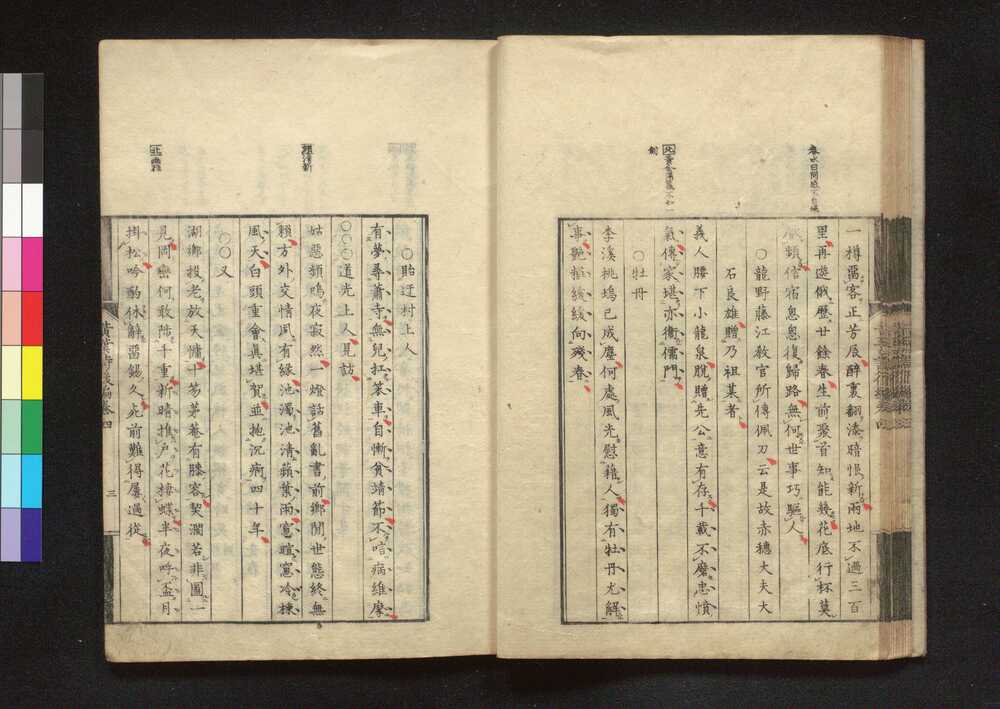 一樽罵客正芳辰醉裏翻凄暗恨新兩地不過三百
里再遊俄歷廿餘春生前聚首知能幾花底行杯莫
辭頻信宿怱怱復歸路無何世事巧驅人
○龍野藤江敎官所傳佩刀云是故赤穗大夫大
石良雄贈乃祖某者
義人腰下小龍泉脫贈先公意有存千載不磨忠憤
氣傳家堪亦衞儒門
○牡丹
李溪桃塢已成塵何處風光慰藉人獨有牡丹尤解
事艷粧緩緩向殘春
○貽迂村上人
有夢尋蕭寺無兒扶笨車自慚貧靖節不唁病維摩
○○○道光上人見訪
姑惡頻鳴夜寂然一燈話舊亂書前鄉閭世態終無
賴方外交情夙有緣池濁池清蘋葉雨窓暄窓冷楝
風天白頭重會眞堪賀並抱沉痾四十年
○○又
湖鄉投老放天慵十笏茅菴有膝容契濶若非圖一
見岡巒何敢陟千重新晴推戶花捿蝶半夜呼盃月
掛松吟酌休辭留錫久死前難得屢過從
黃葉
卷四
三